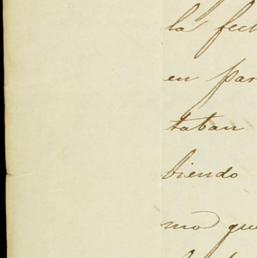 la fech
en par
taban
biendo
mo que